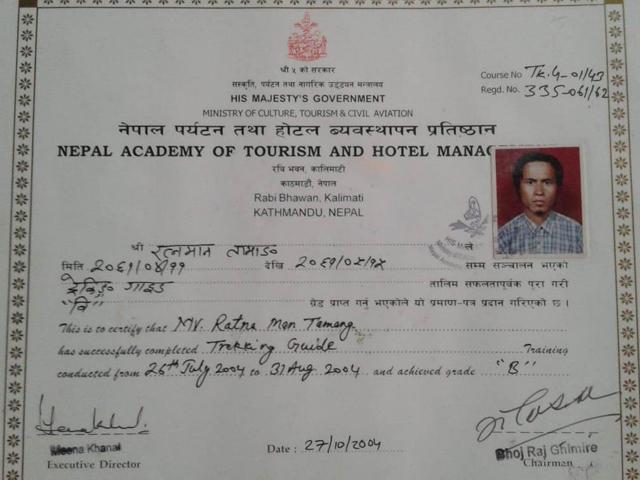 श्री ५ को सरकार
संस्कृति, पर्यटन तथा नागरिक उड्डयन मन्त्रालय
HIS MAJESTY'S GOVERNMENT
MINISTRY OF CULTURE, TOURISM & CIVIL AVIATION
Course No Tk.G-01/43
Regd. No. 335-061/62
नेपाल पर्यटन तथा होटल व्यवस्थापन प्रतिष्ठान
NEPAL ACADEMY OF TOURISM AND HOTEL MANAG
रवि भवन, कालिमाटी
काठमाडौं, नेपाल
Rabi Bhawan, Kalimati
KATHMANDU, NEPAL
श्री रत्नमान तामाङ ले
मिति २०६१/०४/११ देखि २०६१/०५/१५ सम्म सञ्चालन भएको
ट्रेकिङ गाइड तालिम सफलतापूर्वक पूरा गरी
"बि" ग्रेड प्राप्त गर्नु भएकोले यो प्रमाण-पत्र प्रदान गरिएको छ।
This is to certify that Mr. Ratna Man Tamang
has successfully completed Trekking Guide Training
conducted from 26th July 2004 to 31 Aug 2004 and achieved grade "B"
Meena Khanal
Executive Director
Date : 27/10/2004
Bhoj Raj Ghimire
Chairman